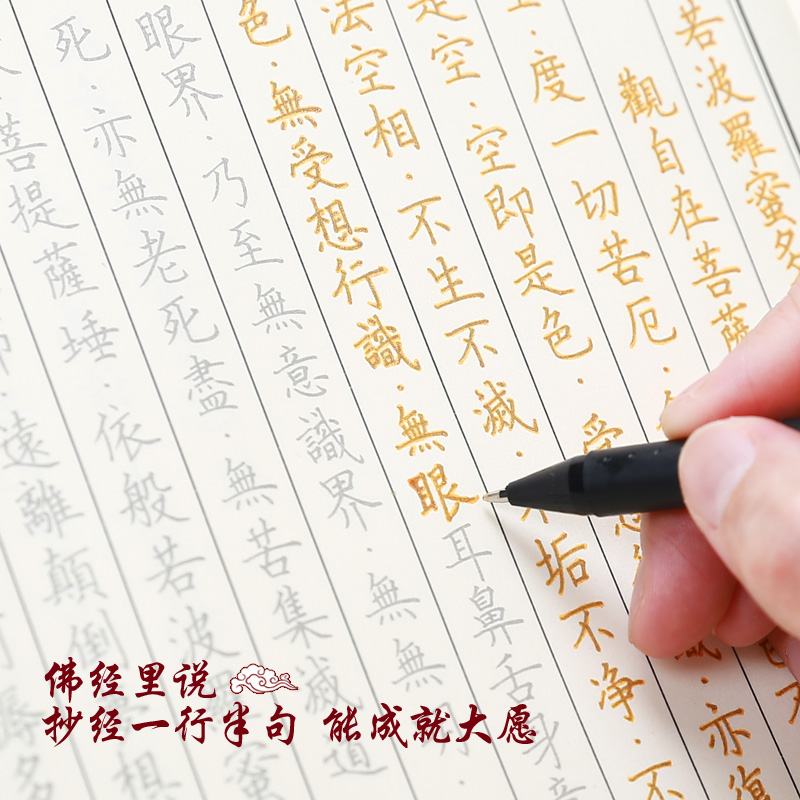 若波羅蜜多
觀自在菩薩
度一切苦厄·
是空·空即是色·受想 識·亦復
法空相·不生不滅·不垢不净·不
色·無受想行識·無眼耳鼻舌身意
眼界·乃至無意識界·無無明·
死·亦無老死盡·無苦集滅道
菩提薩埵·依般若波羅蜜
遠離顛倒 想
佛经里说
抄经一行半句 能成就大愿